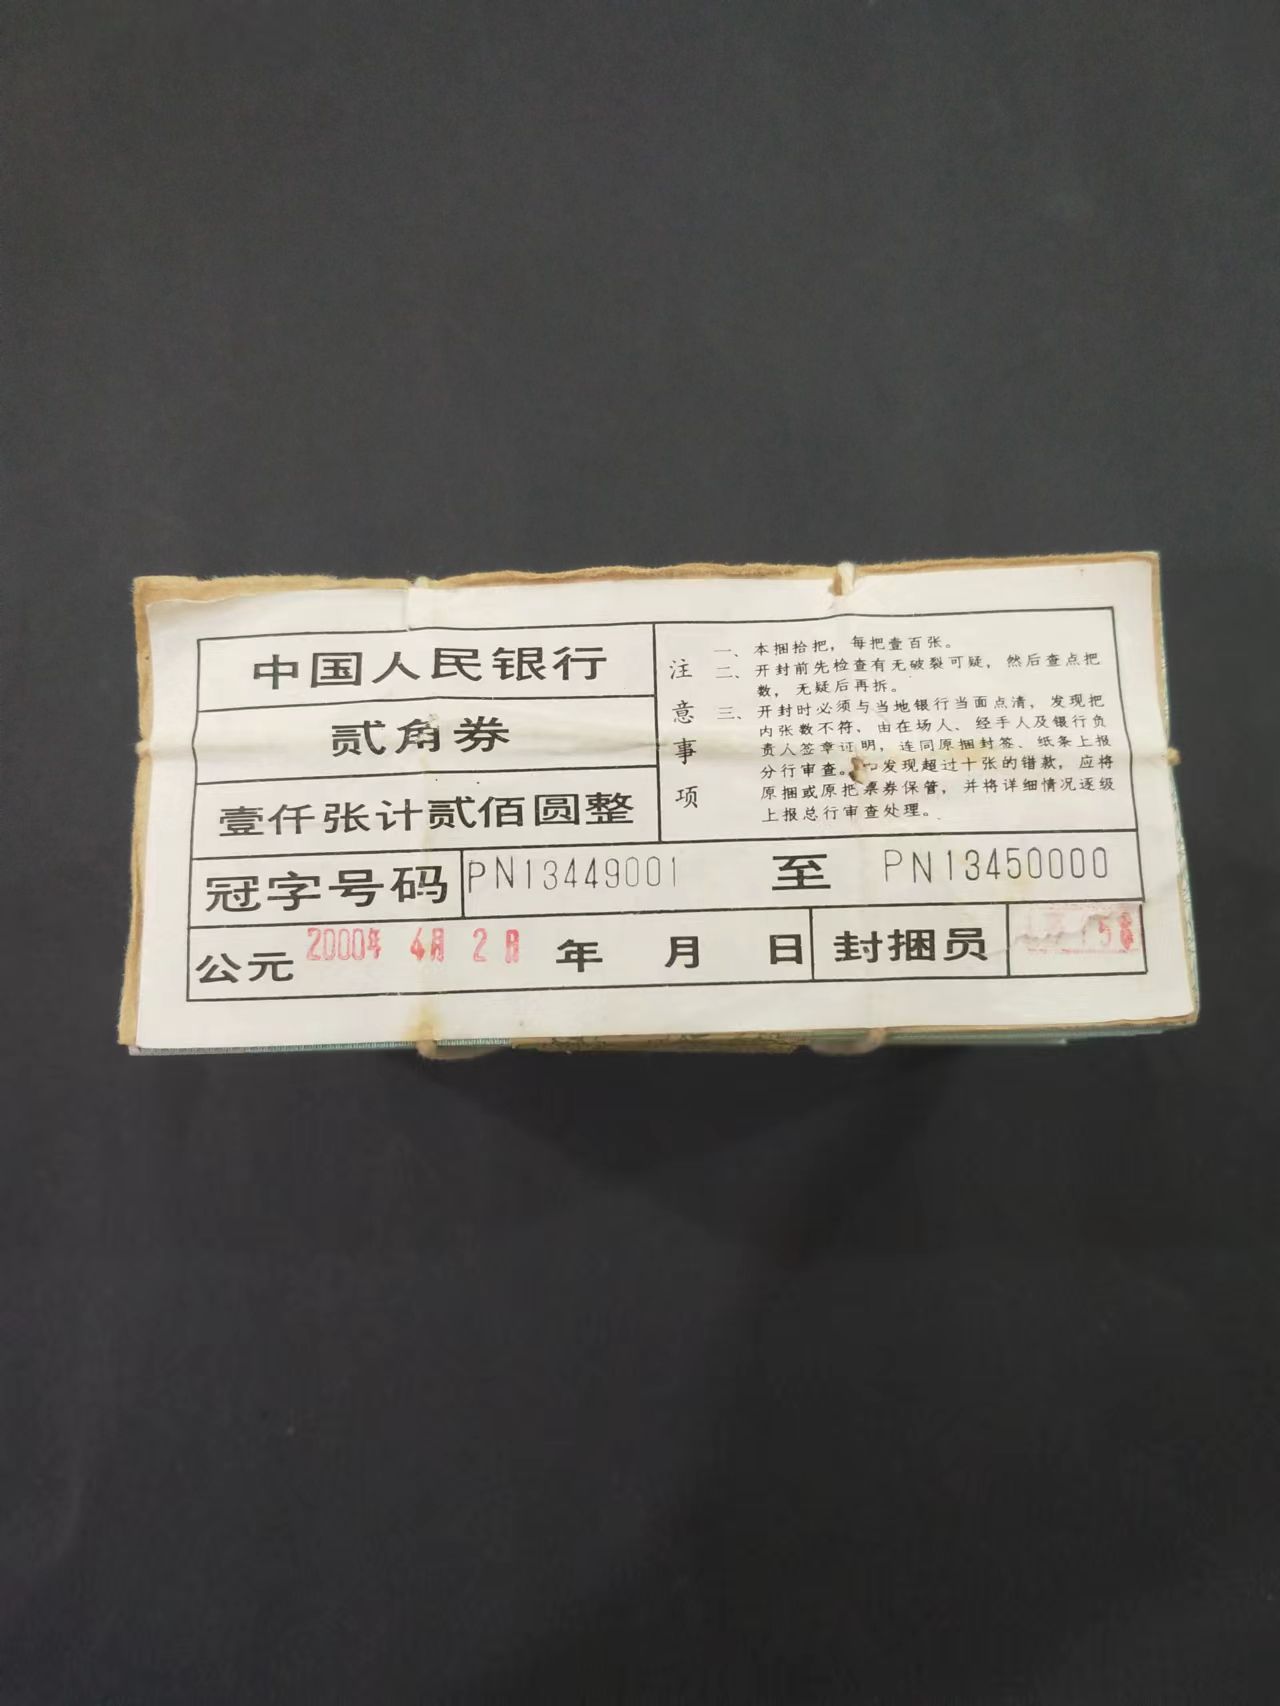 中国人民银行
贰角券
壹仟张计贰佰圆整
注意事项
一、本捆拾把，每把壹百张。
二、开封前先检查有无破裂可疑，然后查点把
数，无疑后再拆。
三、开封时必须与当地银行当面点清，发现把
内张数不符，由在场人、经手人及银行负
责人签章证明，连同原捆封签、纸条上报
分行审查。如发现超过十张的错款，应将
原捆或原把票券保管，并将详细情况逐级
上报总行审查处理。
冠字号码 PN13449001 至 PN13450000
公元 2000年 4月 2日 年 月 日 封捆员